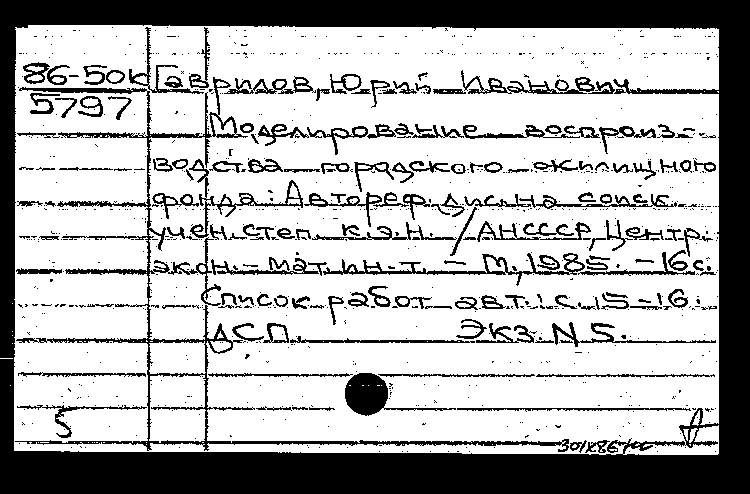 86-50к Гаврилов, Юрий Иванович.
5797
Моделирование воспроиз-
водства городского жилищного
фонда: Автореф. дис. на соиск.
учен. степ. к.э.н. / АНСССР, Центр.
экон.-мат. ин-т. - М., 1985. - 16 с.
Список работ авт.: с. 15-16.
ДСП. Экз. N 5.
5